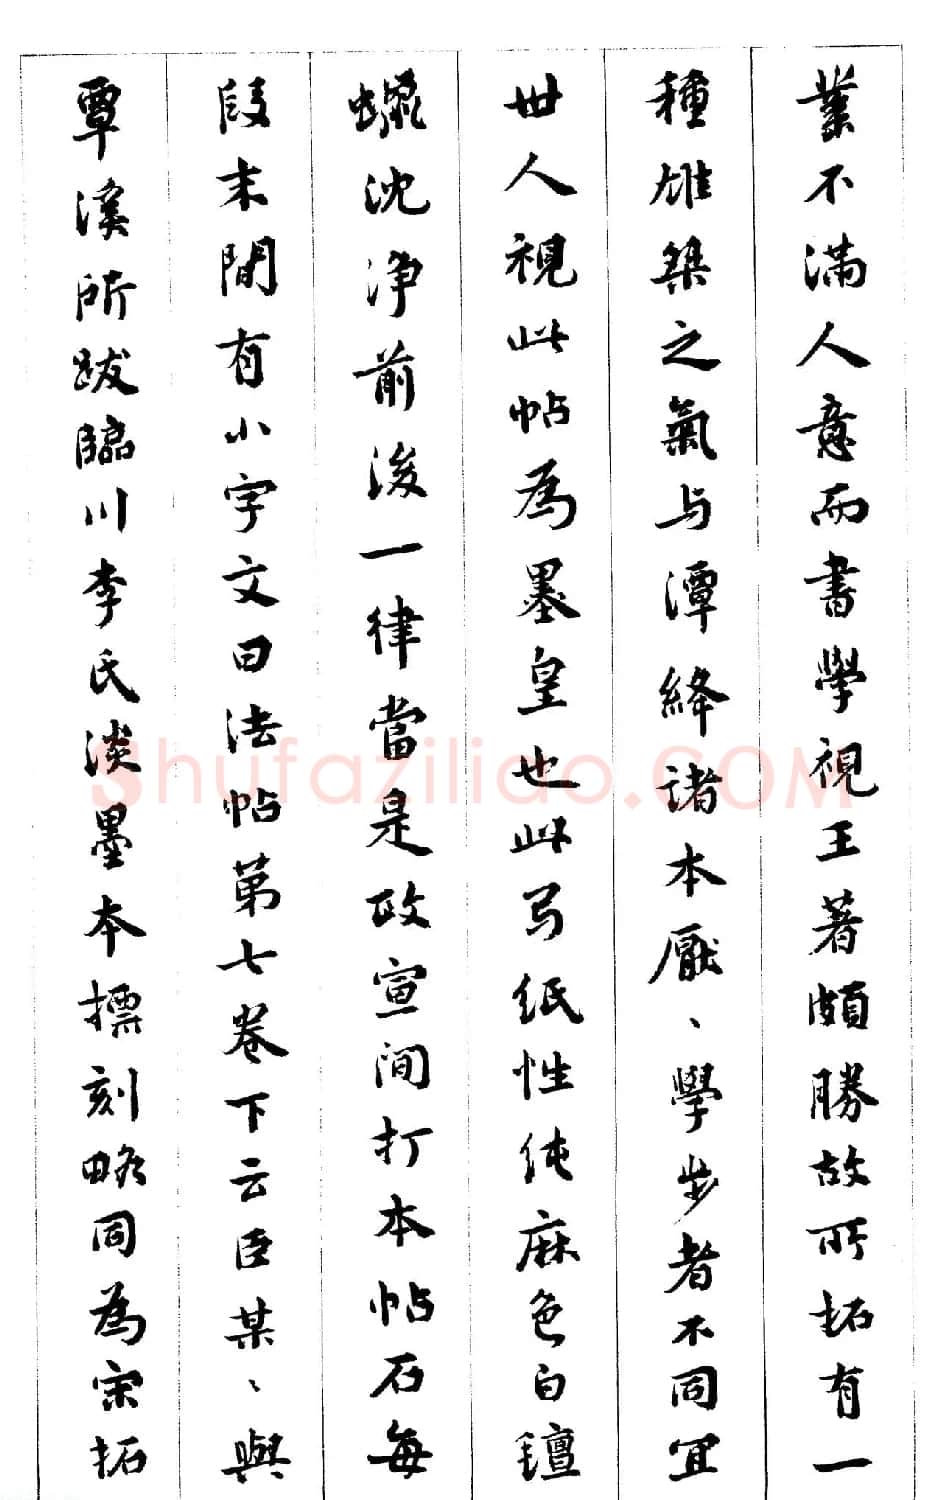 業不滿人意而書學視王著頗勝故所拓有一
種雄桀之氣与潭絳諸本厭、學步者不同宜
世人視此帖為墨皇也此号紙性純麻色白氊
蠟沈净前後一律當是政宣间打本帖石每
段末間有小字文曰法帖第七卷下云臣某、與
覃溪所跋臨川李氏淡墨本摽刻略同為宋拓
Shufaziliao.COM